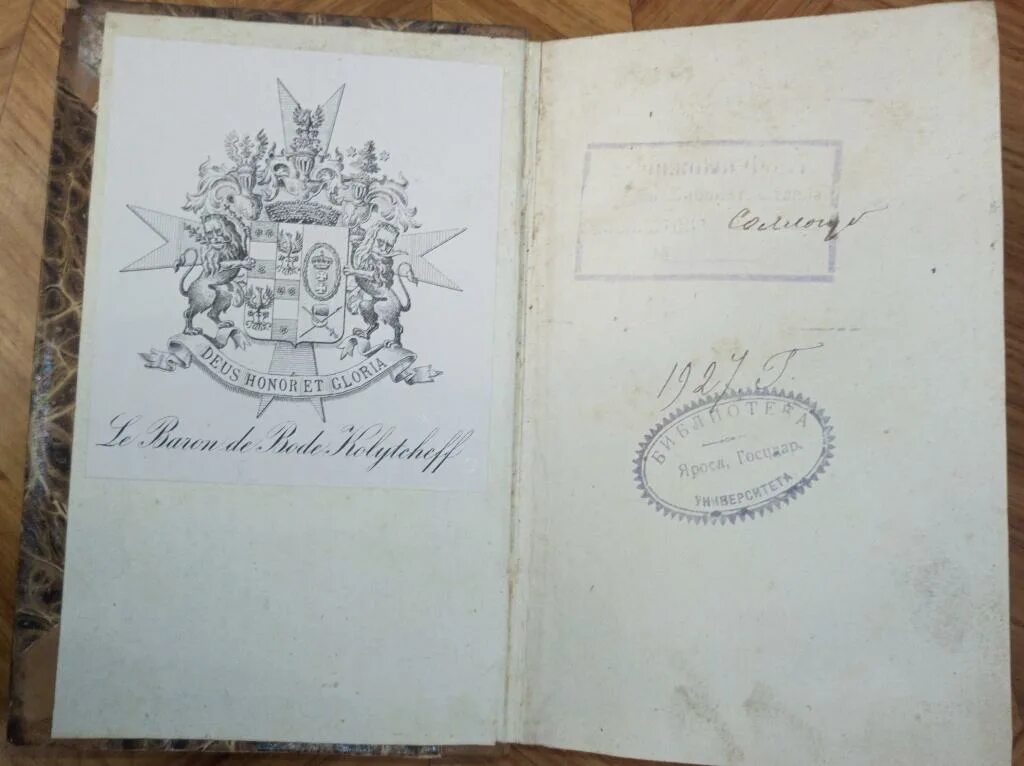 DEUS HONOR ET GLORIA
Le Baron de Bode Kolytcheff
Соллогуб
1927 Г.
БИБЛИОТЕКА
Яросл. Государ.
УНИВЕРСИТЕТА